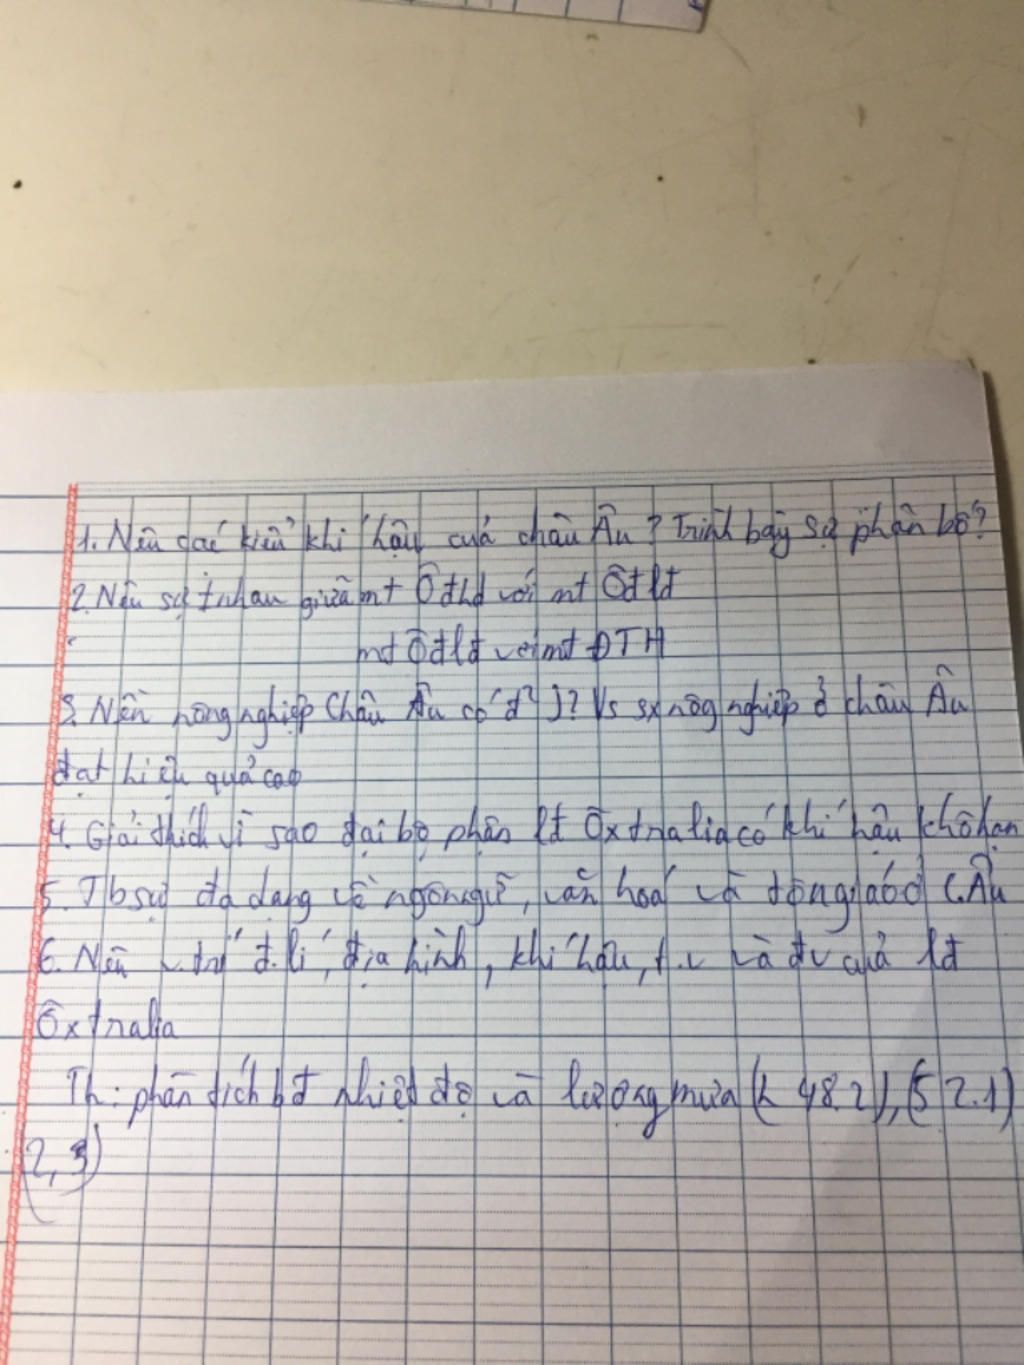 1. Nêu các kiểu khí hậu của châu Âu? Trình bày sự phân bố?
2. Nêu sự # nhau giữa mt Ôđhd với mt Ôđlđ
mt Ôđlđ với mt ĐTH
3. Nền nông nghiệp Châu Âu có đ² j? Vs sx nôg nghiệp ở châu Âu
đạt hiệu quả cao
4. Giải thích vì sao đại bộ phận lđ Ôxtralia có khí hậu khô hạn
5. Tb sự đa dạng về ngôn ngữ, văn hoá và tôn giáo ở C.Âu
6. Nêu v.trí đ.lí, địa hình, khí hậu, t.v và đv của lđ
Ôxtralia
Th: phân tích bđ nhiệt độ và lượng mưa (h 48.2), (52.1)
(2,3)